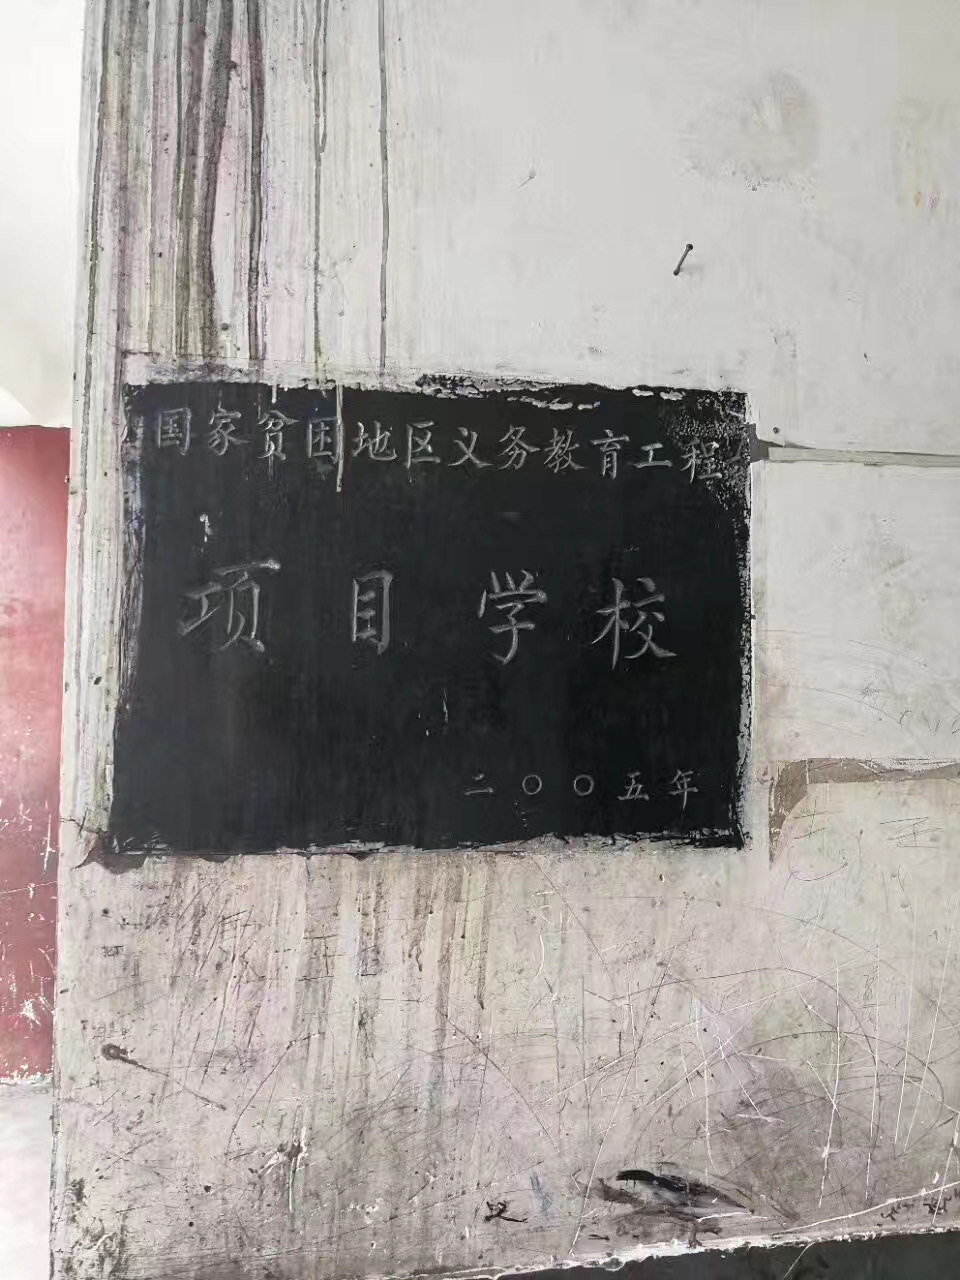 国家贫困地区义务教育工程
项目学校
二〇〇五年